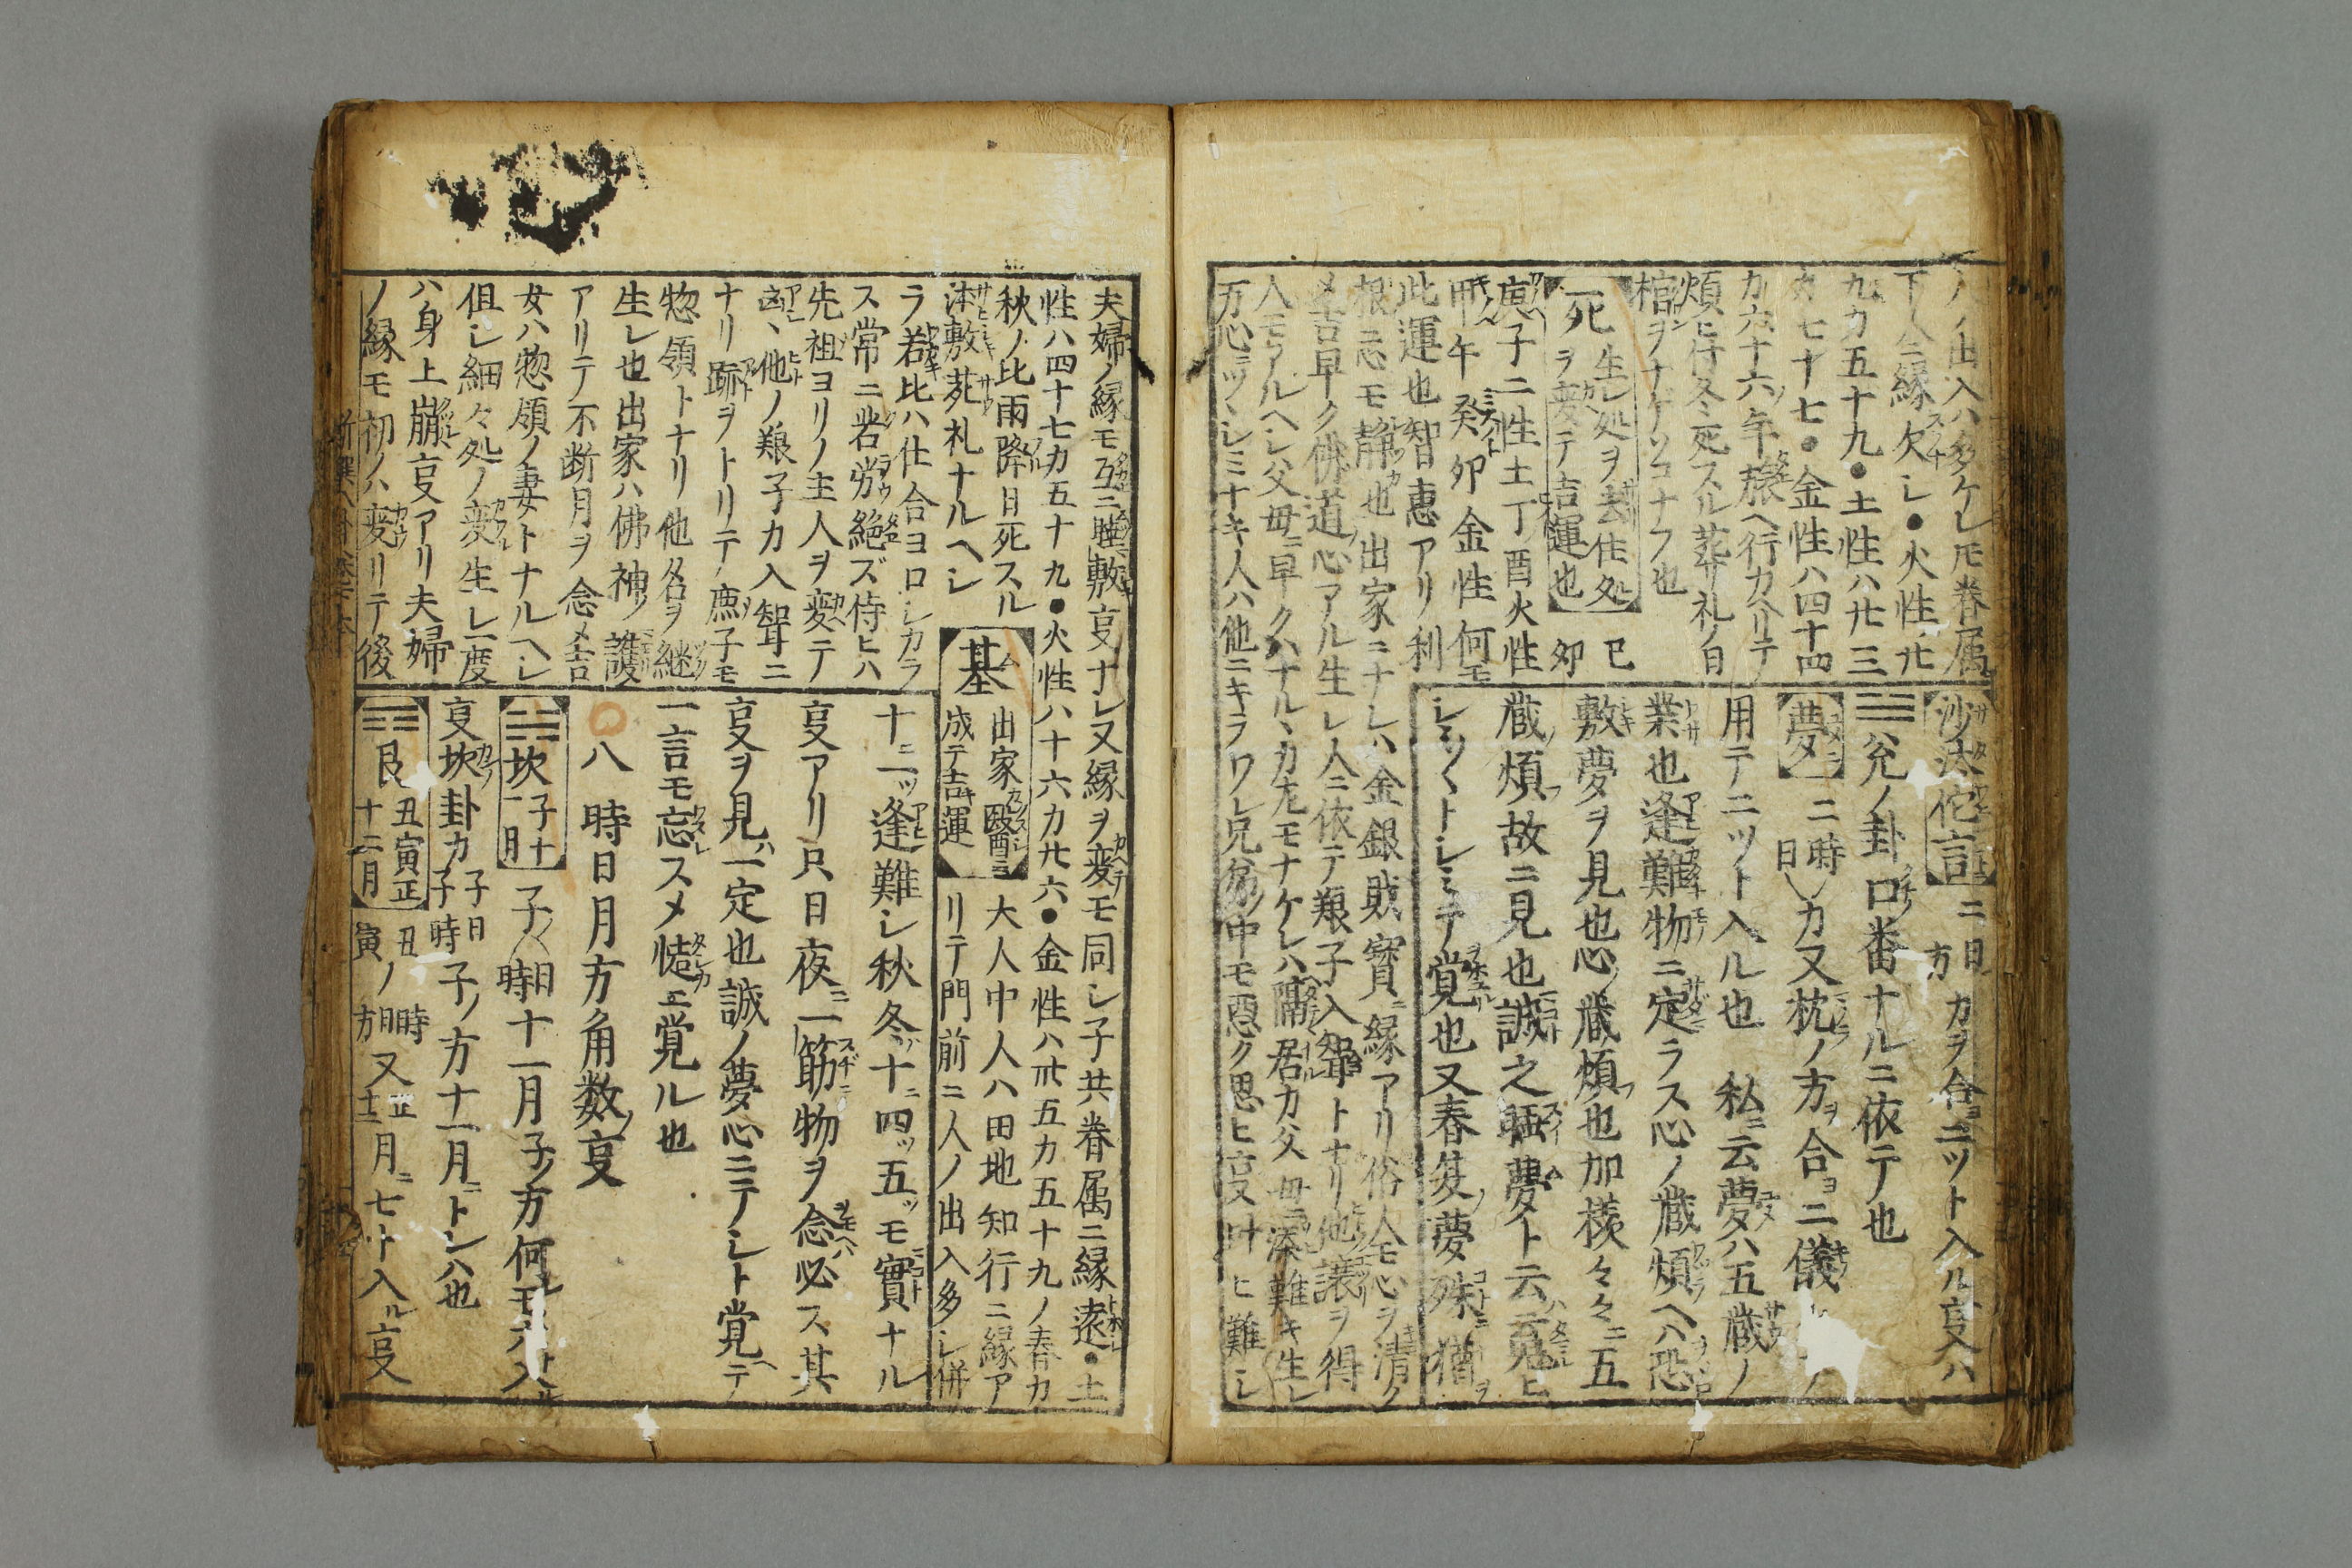 人ノ出入ハ多ケレ𪜈眷属
下人ニ縁欠シ●火性ハ廿
九カ五十九●土性ハ廿三
カ七十七●金性ハ四十四
カ六十六ノ年旅ヘ行カヘリテ
煩ヒ付冬ニ死スル葬礼ノ日
棺ヲナゲソコナフ也
死 生レ処ヲ去住処
ヲ変テ吉運也
巳
卯
庚子ニ性土丁酉火性
甲午癸卯金性何モ
此運也智恵アリ利
根ニ志モ静カ也出家ニナレハ金銀財寳ニ縁アリ俗人モ心ヲ清ク
メ吉早ク佛道心アル生レ人ニ依テ猴子入聟トナリ他ノ譲ヲ得
人モアルヘシ父母ニ早クハナルヽカ左モナケレハ隔居カ父母ニ添難キ生レ
万心ニツヽシミナキ人ハ他ニキラワレ兄弟ノ中モ悪ク思ヒ叓叶ヒ難シ
沙汰侘言
ニ日方カヲ合ヨニツト入ル叓ハ
☱兌ノ卦口ノ畨ナルニ依テ也
夢
二時日カ又枕ノ方ヲ合ヨ二儀
用テニツト入ル也 私ニ云夢ハ五蔵ノ
業也逢難物ニ定ラス心ノ蔵煩ヘハ恐
敷夢ヲ見也心ノ蔵煩フ也加様々々ニ五
蔵煩フ故ニ見也誠之夢ト云ハ見ヒ
シミ〱トレミテ覚也又春ノ夢殊ニ猶ヲ
夫婦ノ縁モ互ニ睦敷叓ナレ又縁ヲ変テモ同シ子共眷属ニ縁遠シ●土
性ハ四十七カ五十九●火性ハ十六カ廿六●金性ハ卅五カ五十九ノ春カ
秋ノ比雨降ル日死スル
沐敷葬礼ナルヘシ
墓 出家醫ヨ
成テ吉運
大人中人ハ田地知行ニ縁ア
リテ門前ニ人ノ出入多シ併
ラ若キ比ハ仕合ヨロシカラ
ス常ニ苦労絶ズ侍ヒハ
先祖ヨリノ主人ヲ変テ
凶ヽ他ノ猴子カ入聟ニ
ナリ跡ヲトリテ庶子モ
惣領トナリ他ノ名ヲ継
生レ也出家ハ佛神ノ護
アリテ不断月ヲ念メ吉
女ハ惣領ノ妻トナルヘシ
但シ細々処ノ変生レ一度
ハ身上崩ル叓アリ夫婦
ノ縁モ初ノハ変リテ後
十ニ一ツ逢難シ秋冬ハ十ニ四ツ五ツモ實ナル
叓アリ只日夜ニ一筋物ヲ念ハ必ス其
叓ヲ見ハ一定也誠ノ夢心ニテノシト覚ヘテ
一言モ忘スメ慥ニ覚ル也
○八 時日月方角数ノ叓
☵坎 子十一月
子ノ日時十一月子ノ方何レモ六ト入ル
叓坎ノ卦カ子ノ日子ノ時子ノ方十一月ニトレハ也
☶艮 丑寅正十二月
丑寅ノ時日方又正十二月ニ七ト入ル叓